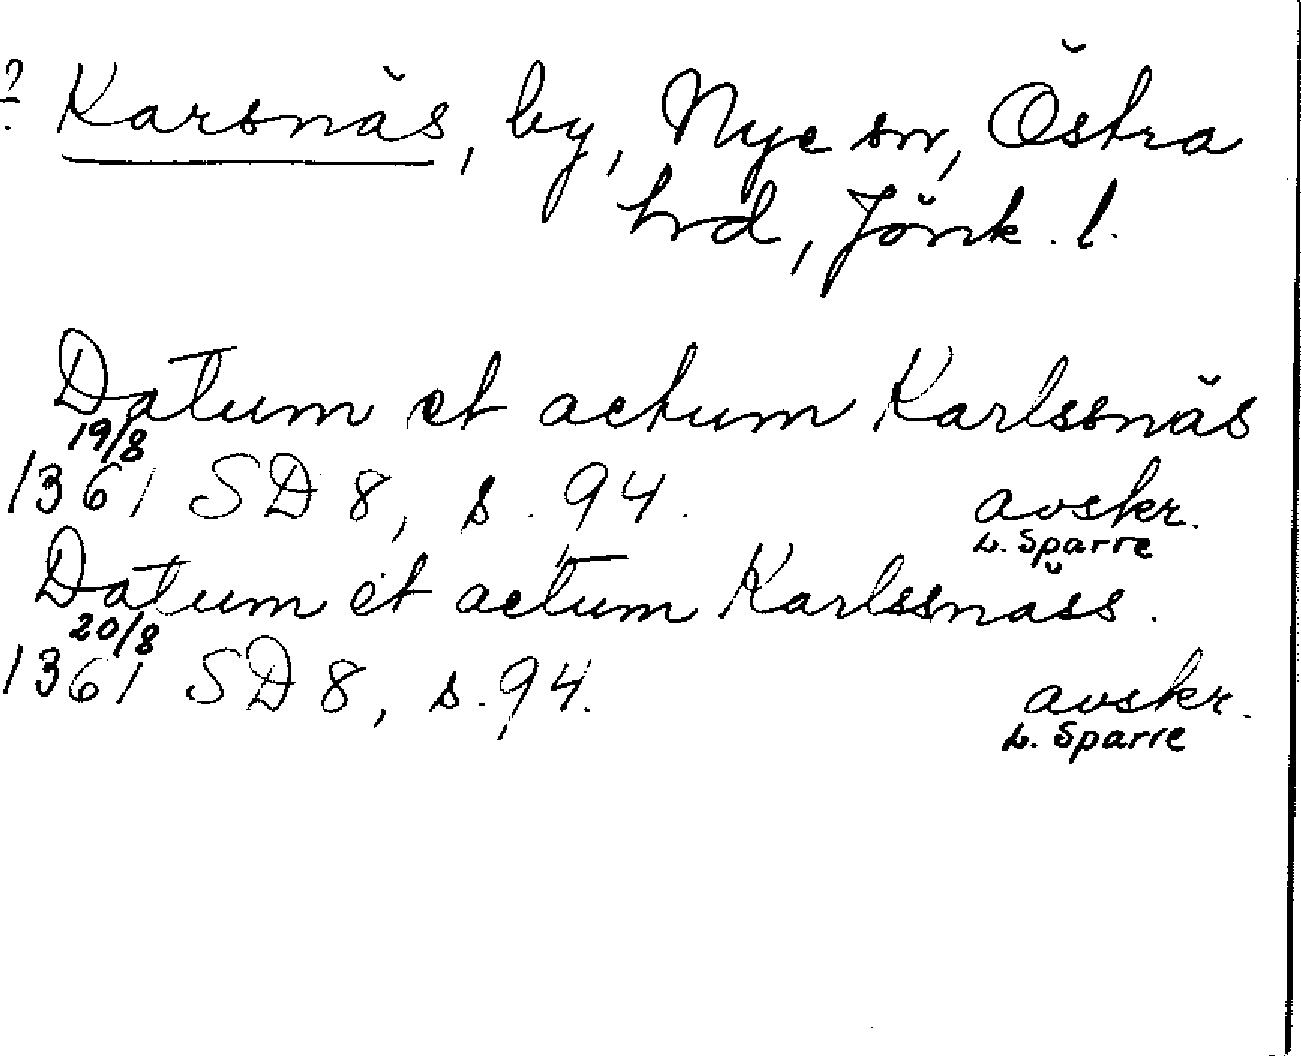 ? Karsnäs, by, Nye sn, Östra
hrd, Jönk. l.
Datum et actum Karlssnäs
19/8
1361 SD 8, s. 94. avskr.
L. Sparre
Datum et actum Karlssnäss.
20/8
1361 SD 8, s. 94. avskr.
L. Sparre